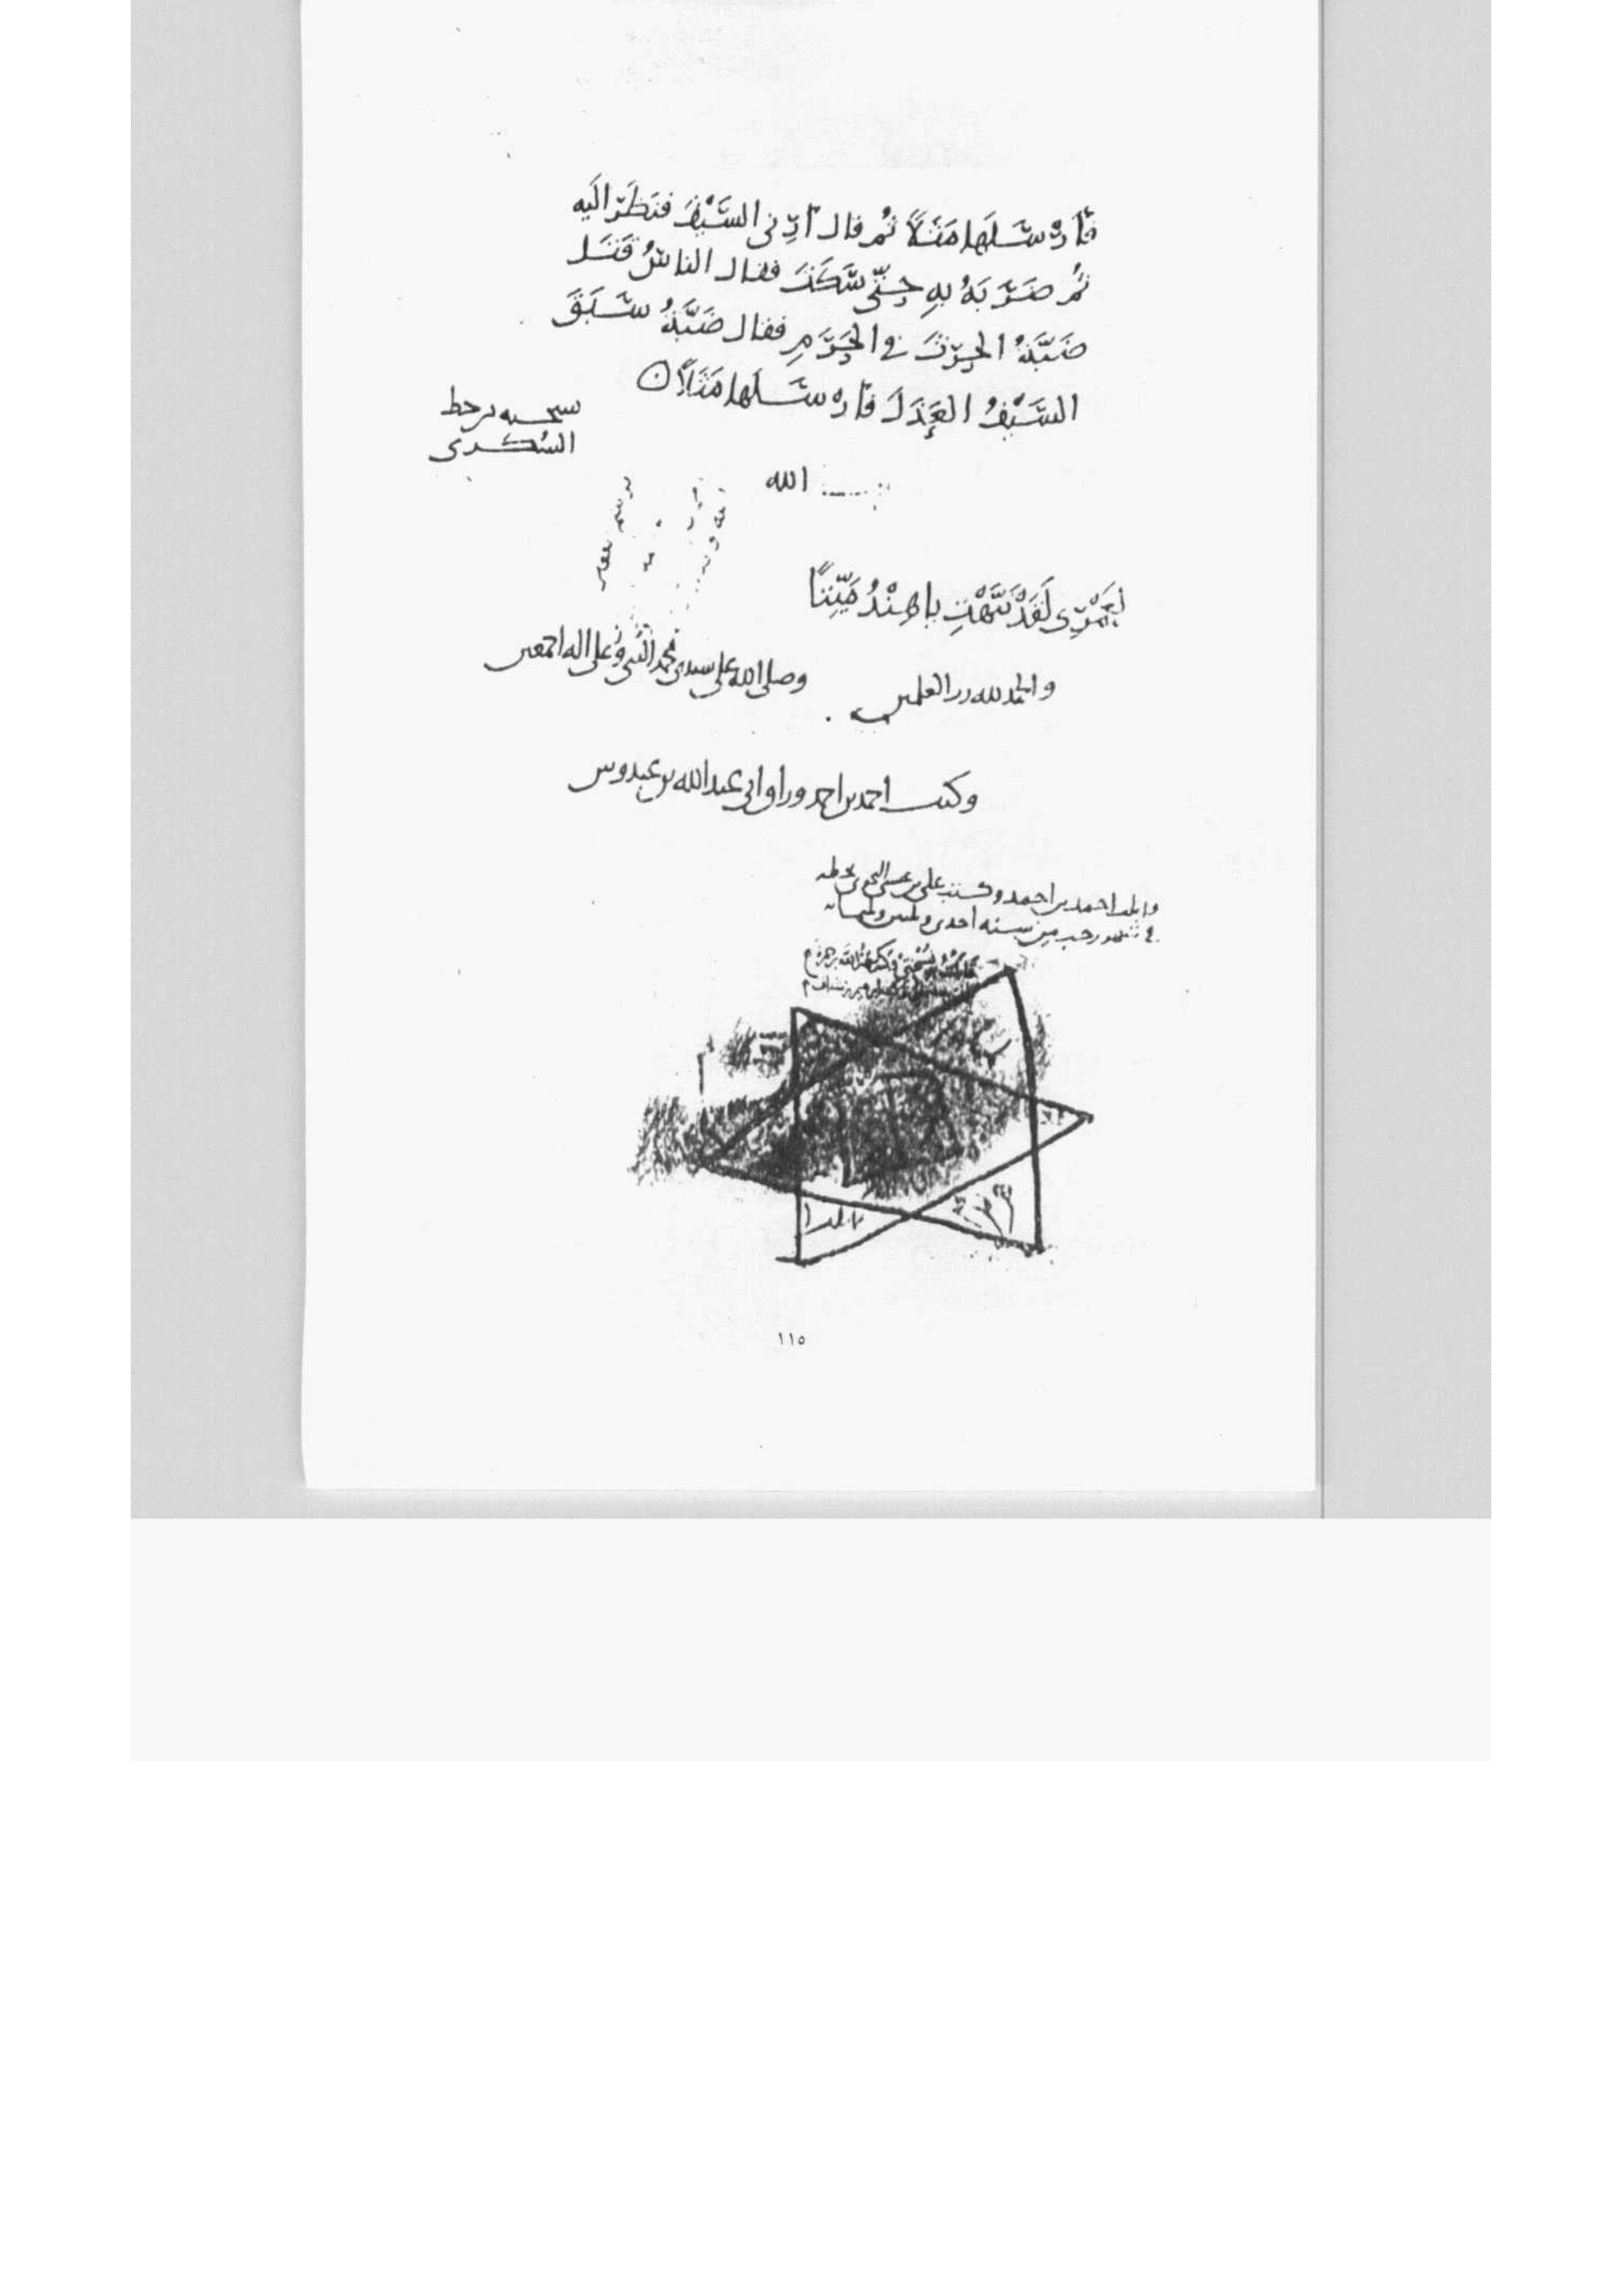 فَأَرْسَلَها مَثَلاً ثم قال أَرِنى السَّيْفَ فنَظَرَ الَيه
ثم ضَرَبَهُ بهِ حتّى سَكَتَ فقال الناسُ قَتَل
ضَبَّةُ الحرثَ في الحَرَمِ فقال ضَبَّةُ سَبَقَ
السَّيْفُ العَذَلَ فأرسَلَها مَثَلاً
نسخته من خط
السكرى
الله
لعَمْرِى لَقَدْ نَبَّهْتِ يا هِنْدُ مَيِّتاً
والحمد لله رب العلمين
وصلى الله على سيدى محمد النبي وعلى اله اجمعين
وكتب احمد بن احمد وراق ابى عبد الله بن عبدوس
احمد بن احمد وكتب على بن عيسى النحوى بخطه
في شهر رجب من سنه احدى وثلثين وثلثمائه
١١٥